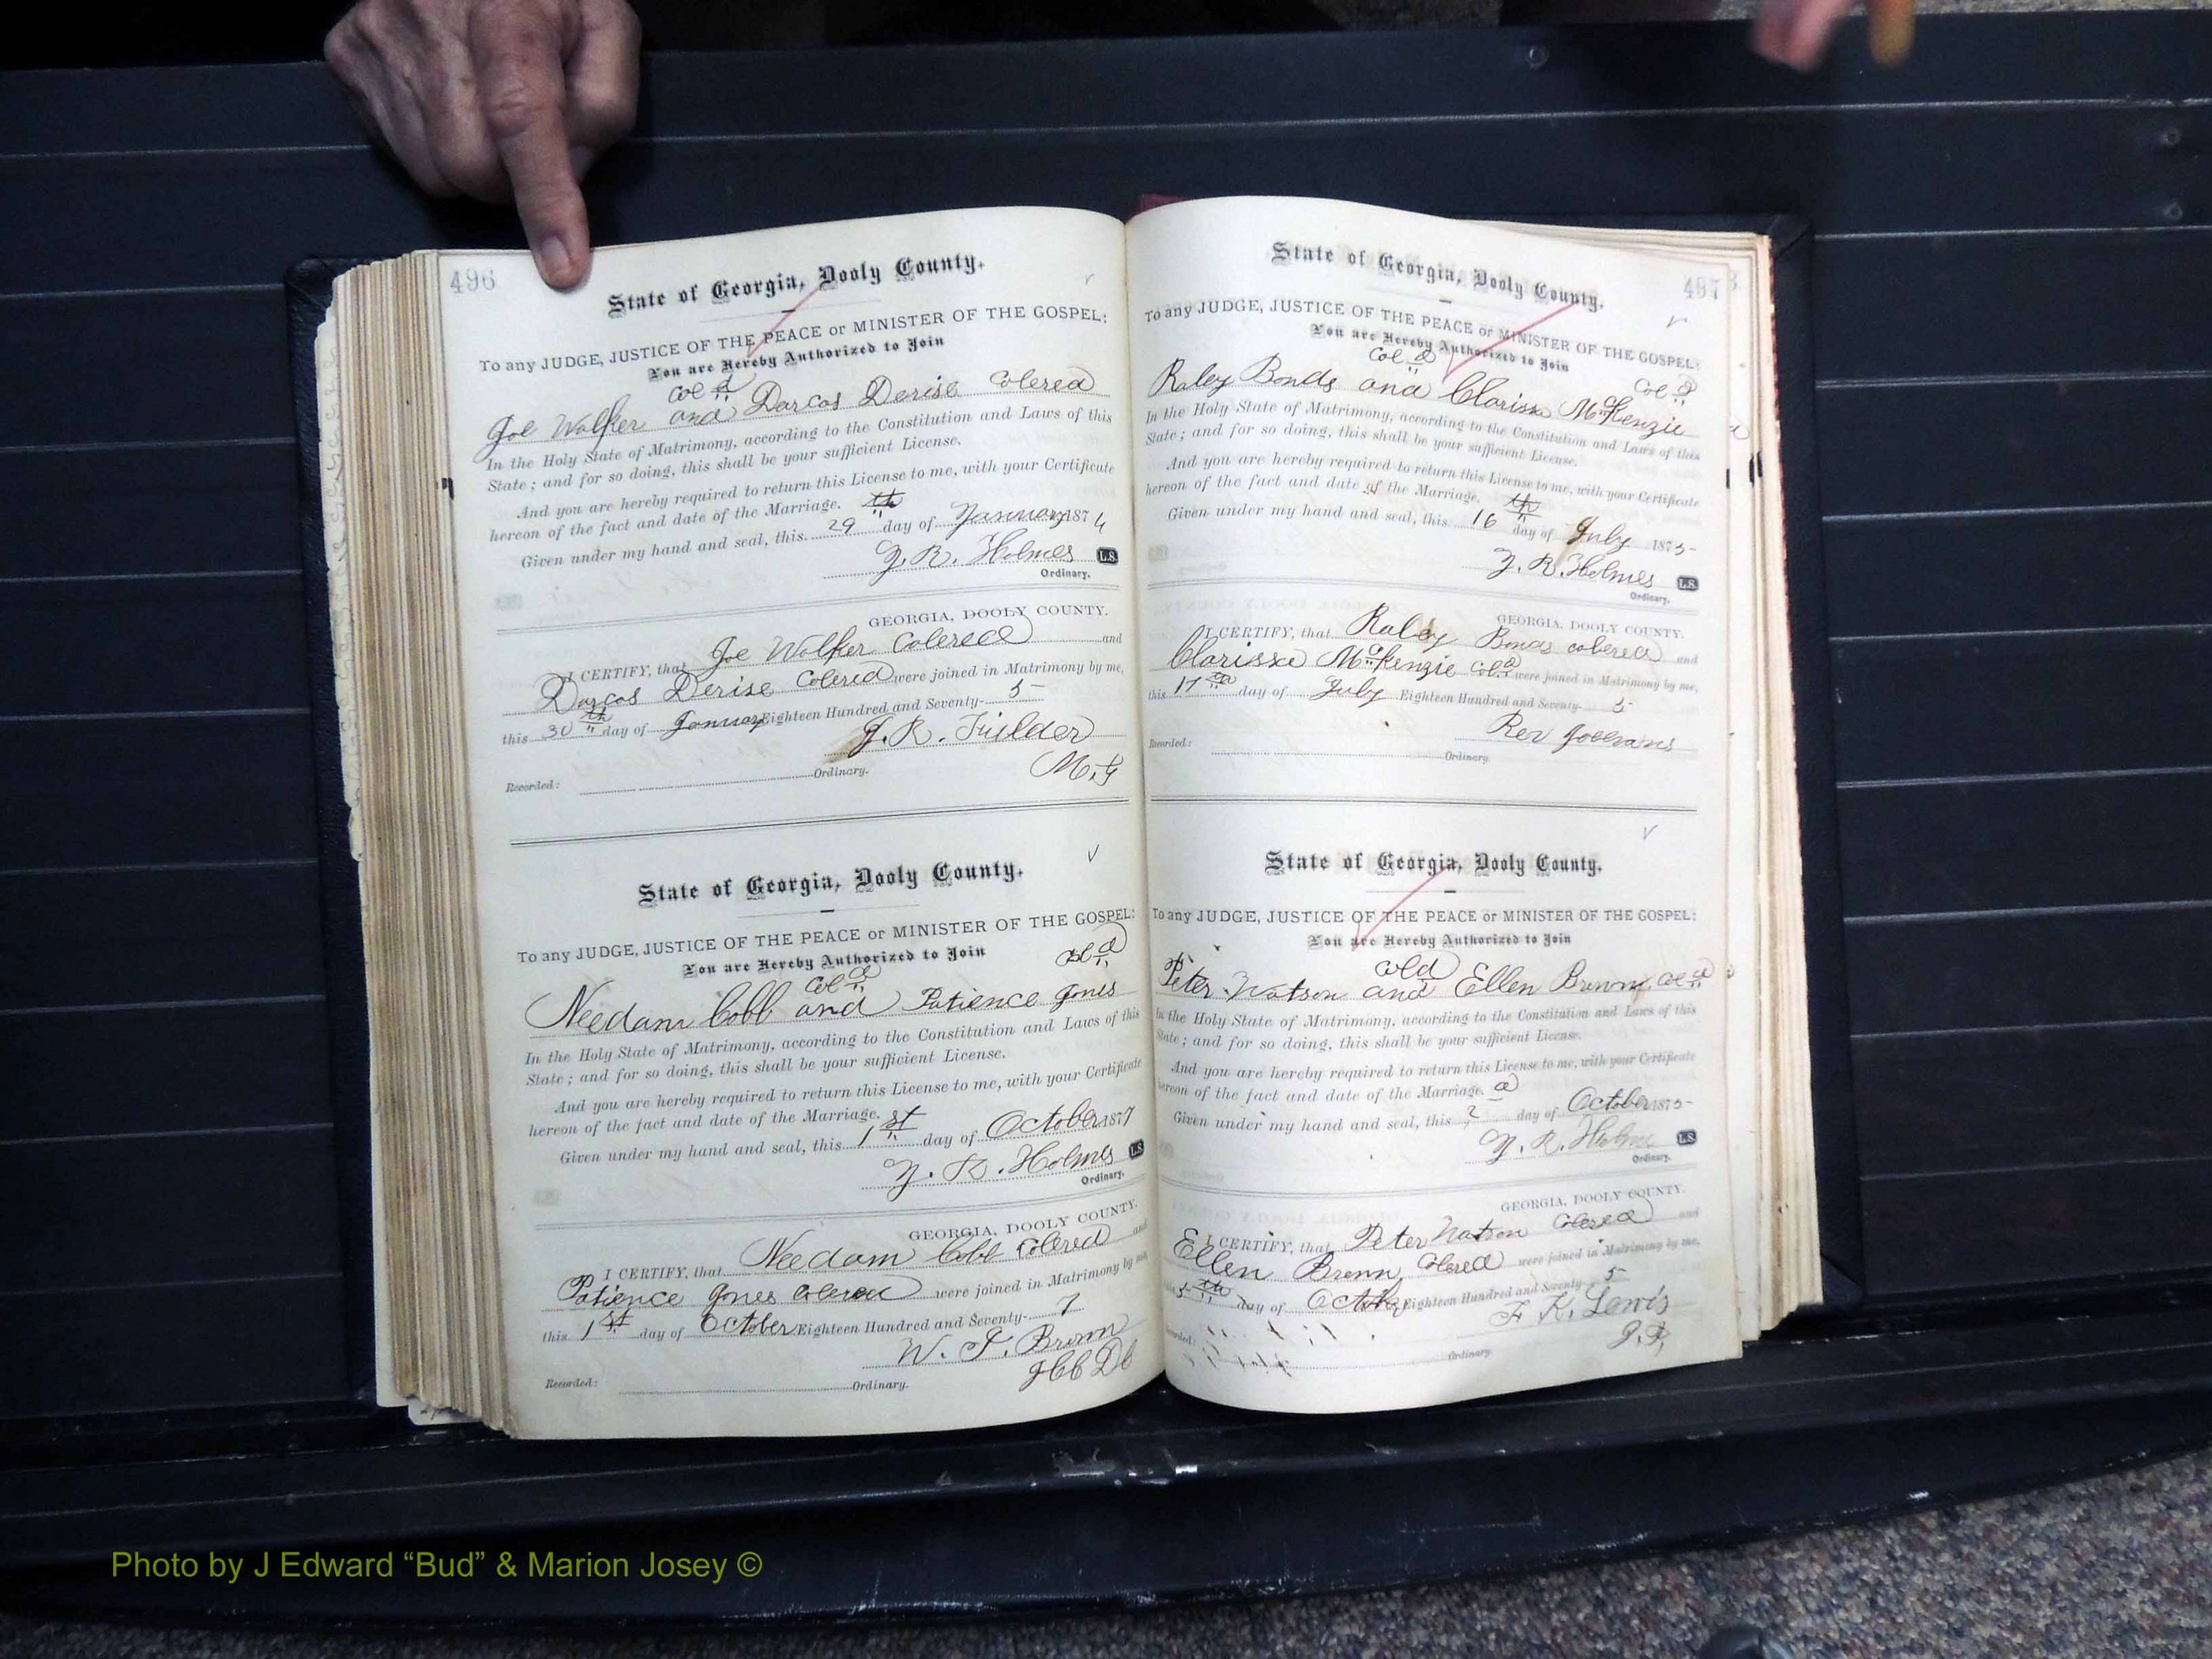 496
State of Georgia, Dooly County.
To any JUDGE, JUSTICE OF THE PEACE or MINISTER OF THE GOSPEL:
You are Hereby Authorized to Join
Col d
Joe Walker and Darcas Derise Colered
In the Holy State of Matrimony, according to the Constitution and Laws of this
State; and for so doing, this shall be your sufficient License.
And you are hereby required to return this License to me, with your Certificate
hereon of the fact and date of the Marriage.
Given under my hand and seal, this 29 th day of January 1874
Y. R. Holmes L.S.
Ordinary.
GEORGIA, DOOLY COUNTY.
I CERTIFY, that Joe Walker Colered and
Darcas Derise Colered were joined in Matrimony by me,
this 30 th day of January Eighteen Hundred and Seventy- 5
J. R. Fuilder
M.G
Recorded: Ordinary.
State of Georgia, Dooly County.
To any JUDGE, JUSTICE OF THE PEACE or MINISTER OF THE GOSPEL:
You are Hereby Authorized to Join
Col d Col d
Needam Cobb and Patience Jones
In the Holy State of Matrimony, according to the Constitution and Laws of this
State; and for so doing, this shall be your sufficient License.
And you are hereby required to return this License to me, with your Certificate
hereon of the fact and date of the Marriage.
Given under my hand and seal, this 1 st day of October 1877
Y. R. Holmes L.S.
Ordinary.
GEORGIA, DOOLY COUNTY.
I CERTIFY, that Needam Cobb Colered and
Patience Jones Colered were joined in Matrimony by me,
this 1 st day of October Eighteen Hundred and Seventy- 7
W. T. Brown
Recorded: Ordinary.
497
State of Georgia, Dooly County.
To any JUDGE, JUSTICE OF THE PEACE or MINISTER OF THE GOSPEL:
You are Hereby Authorized to Join
Col d Col d
Raley Bonds and Clarissa McKenzie
In the Holy State of Matrimony, according to the Constitution and Laws of this
State; and for so doing, this shall be your sufficient License.
And you are hereby required to return this License to me, with your Certificate
hereon of the fact and date of the Marriage.
Given under my hand and seal, this 16 th day of July 1875
Y. R. Holmes L.S.
Ordinary.
GEORGIA, DOOLY COUNTY.
I CERTIFY, that Raley Bonds colered and
Clarissa McKenzie Col d were joined in Matrimony by me,
this 17 day of July Eighteen Hundred and Seventy- 5
Rev
Recorded: Ordinary.
State of Georgia, Dooly County.
To any JUDGE, JUSTICE OF THE PEACE or MINISTER OF THE GOSPEL:
You are Hereby Authorized to Join
Cold
Peter Watson and Ellen Brown Col d
In the Holy State of Matrimony, according to the Constitution and Laws of this
State; and for so doing, this shall be your sufficient License.
And you are hereby required to return this License to me, with your Certificate
hereon of the fact and date of the Marriage.
Given under my hand and seal, this 2 d day of October 1875
Y. R. Holmes L.S.
Ordinary.
GEORGIA, DOOLY COUNTY.
I CERTIFY, that Peter Watson Colered and
Ellen Brown Colered were joined in Matrimony by me,
this 5 th day of October Eighteen Hundred and Seventy- 5
F. K. Lewis
J.P.
Recorded: Ordinary.
Photo by J Edward “Bud” & Marion Josey ©